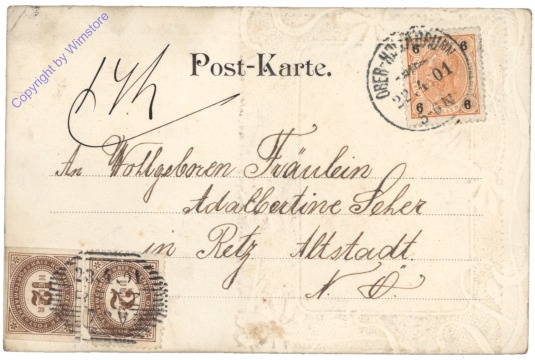 Copyright by Wimstore
Post-Karte.
OBER-HOLLABRUNN
22.4.01
6 6
6 6
An Wohlgeboren Fräulein
Adalbertine Seher
in Retz Altstadt.
N. Ö.
12
2